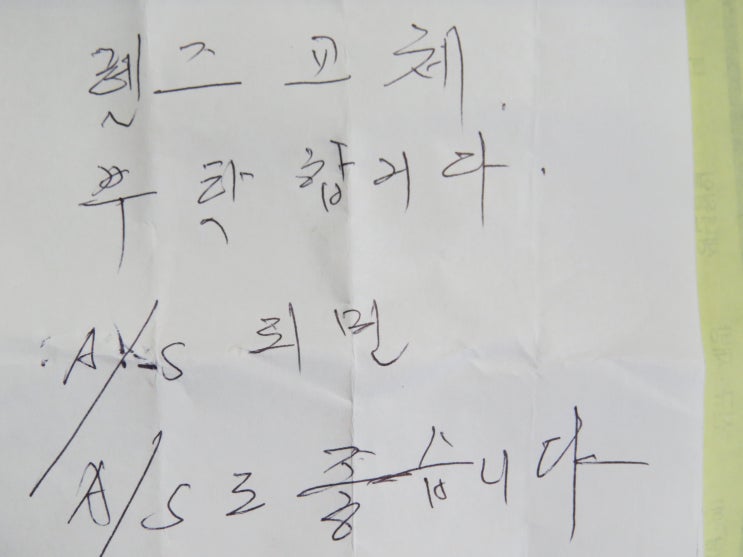 렌즈 교체.
부탁합니다.
:A/S 되면
A/S도 좋습니다